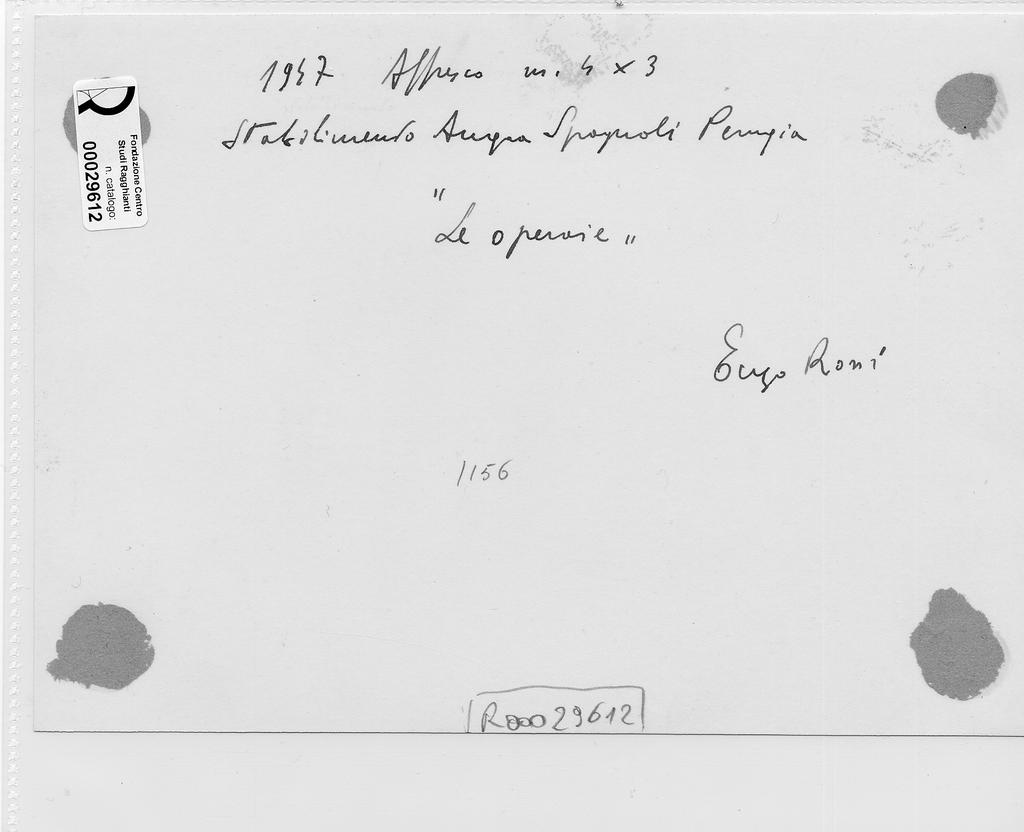 1947 Affresco m. 4 x 3
Stabilimento Angora Spagnoli Perugia
"Le operaie"
Enzo Rossi
1156
R00029612
Fondazione Centro
Studi Ragghianti
n. catalogo:
00029612